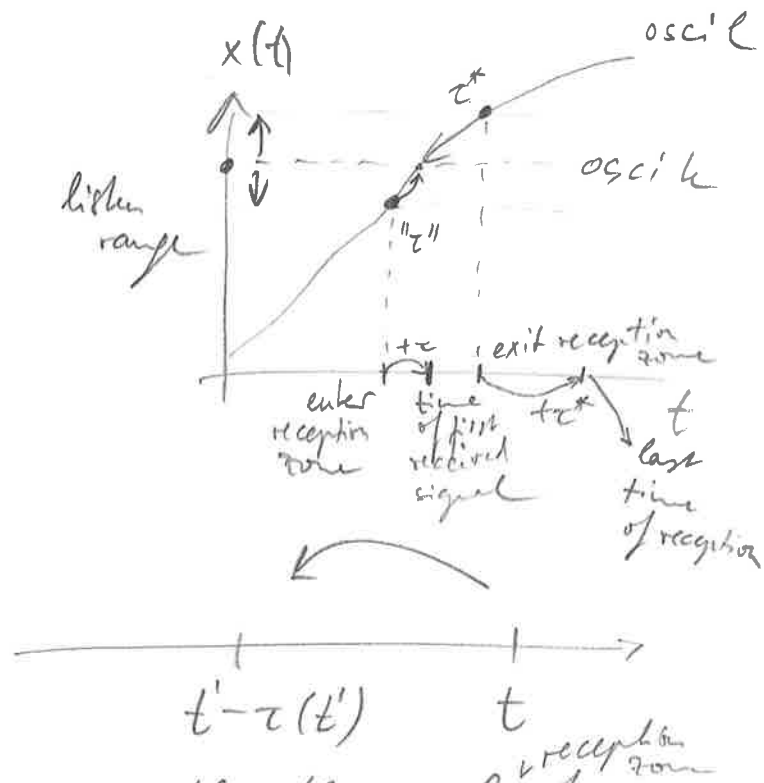 x(t)
oscil
τ*
oscik
listen
range
"τ"
+τ
exit reception
zone
enter
reception
zone
time
of first
received
signal
+τ*
t
last
time
of reception
t'-τ(t')
t
reception
zone